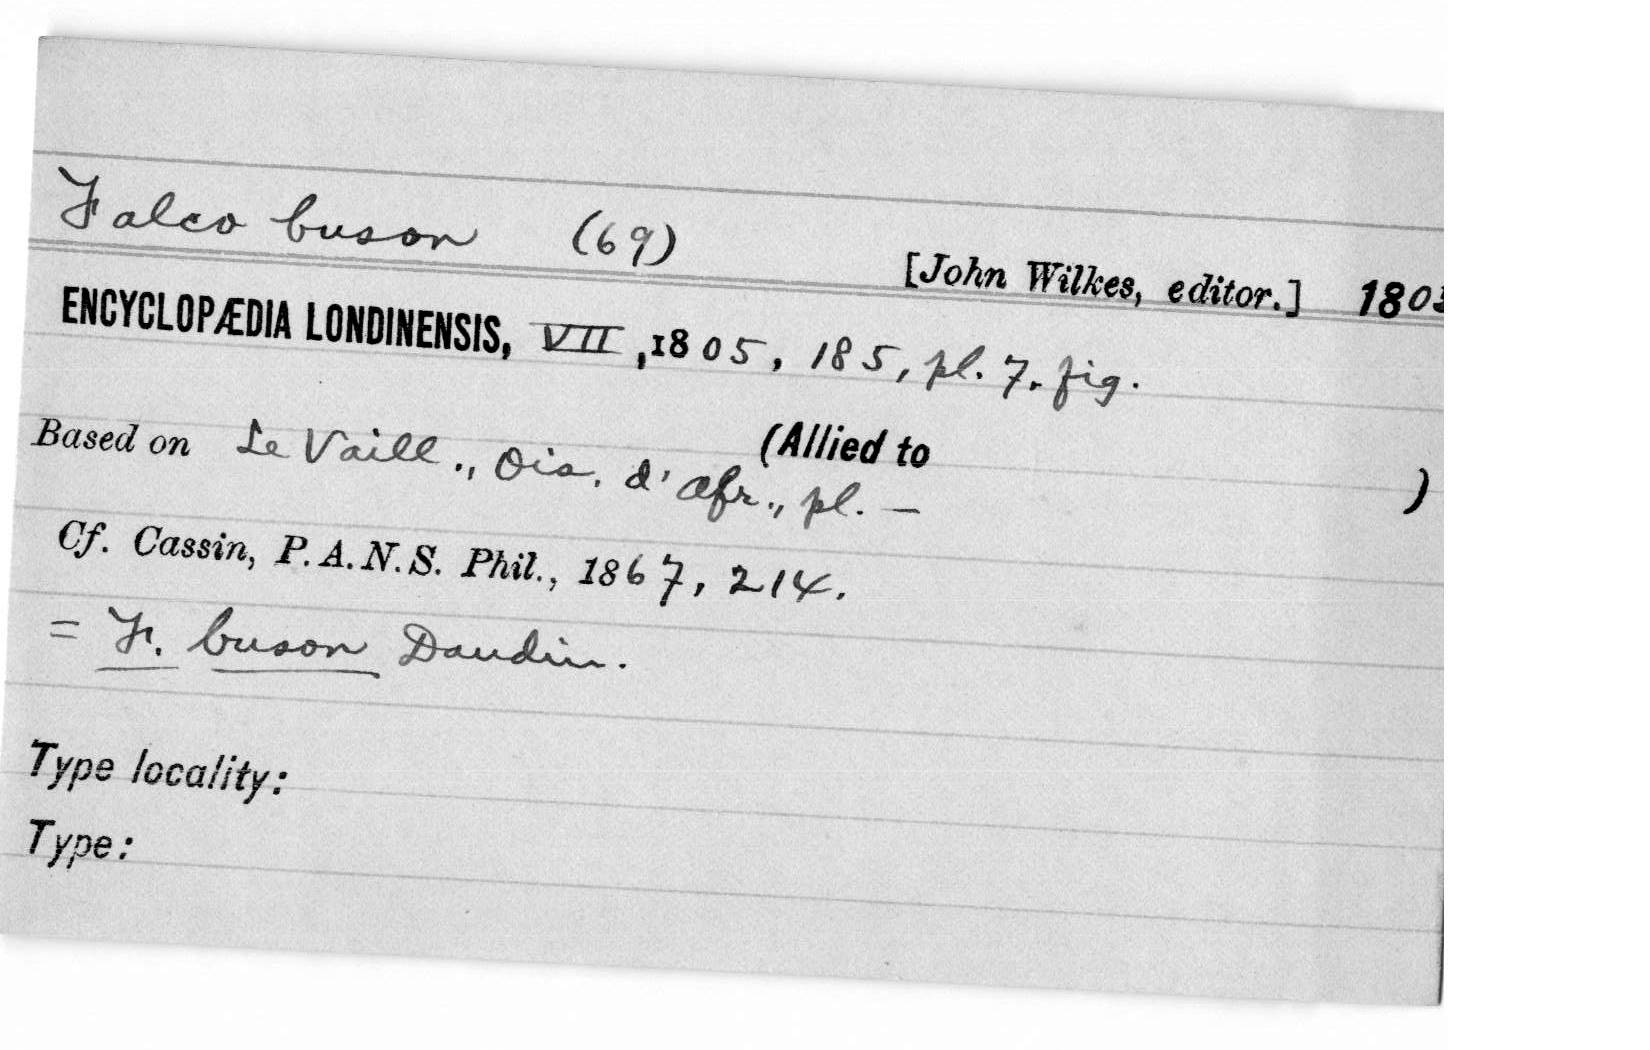 Falco buson (69)
[John Wilkes, editor.] 180
ENCYCLOPÆDIA LONDINENSIS, VII, 1805, 185, pl. 7. fig.
(Allied to )
Based on Le Vaill., Ois. d'Afr., pl. —
Cf. Cassin, P.A.N.S. Phil., 1867, 214.
= F. buson Daudin.
Type locality:
Type: